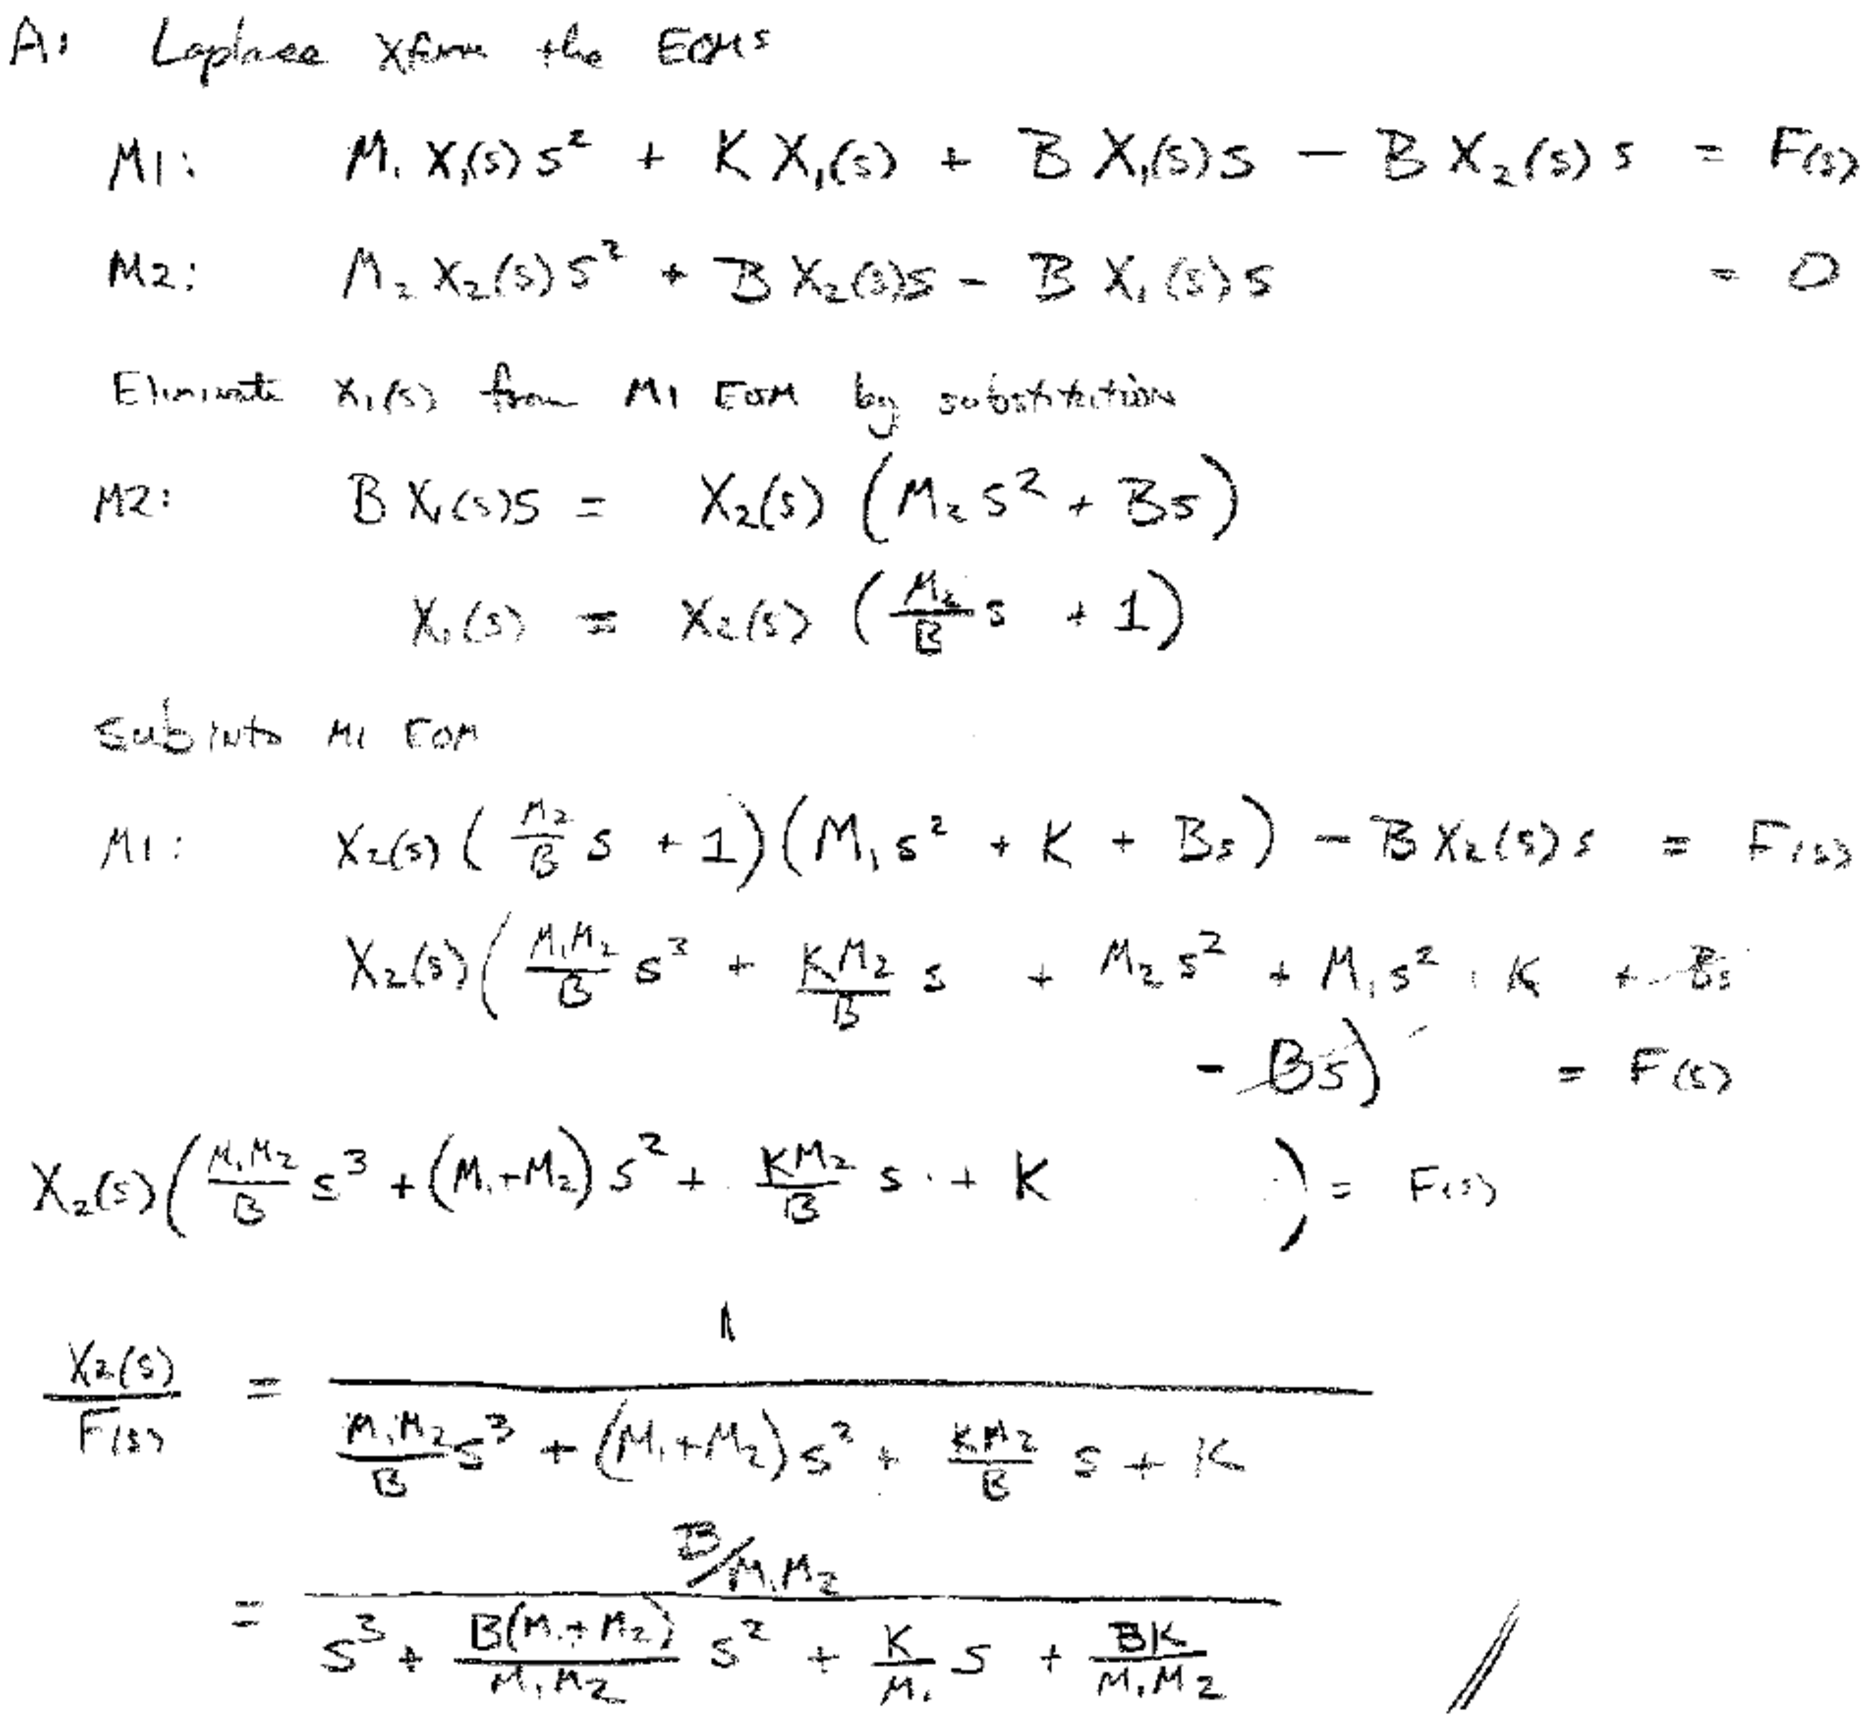 A: Laplace Xfrm the EOMs
M1: M₁ X₁(s) s² + K X₁(s) + B X₁(s) s − B X₂(s) s = F(s)
M2: M₂ X₂(s) s² + B X₂(s) s − B X₁(s) s = 0
Eliminate X₁(s) from M1 EOM by substitution
M2: B X₁(s) s = X₂(s) (M₂ s² + Bs)
X₁(s) = X₂(s) (M₂/B s + 1)
Sub into M1 EOM
M1: X₂(s) (M₂/B s + 1)(M₁ s² + K + Bs) − B X₂(s) s = F(s)
X₂(s) (M₁M₂/B s³ + KM₂/B s + M₂ s² + M₁ s² + K + Bs
− Bs) = F(s)
X₂(s) (M₁M₂/B s³ + (M₁+M₂) s² + KM₂/B s + K ) = F(s)
X₂(s)/F(s) = 1 / (M₁M₂/B s³ + (M₁+M₂) s² + KM₂/B s + K)
= B/M₁M₂ / (s³ + B(M₁+M₂)/M₁M₂ s² + K/M₁ s + BK/M₁M₂)